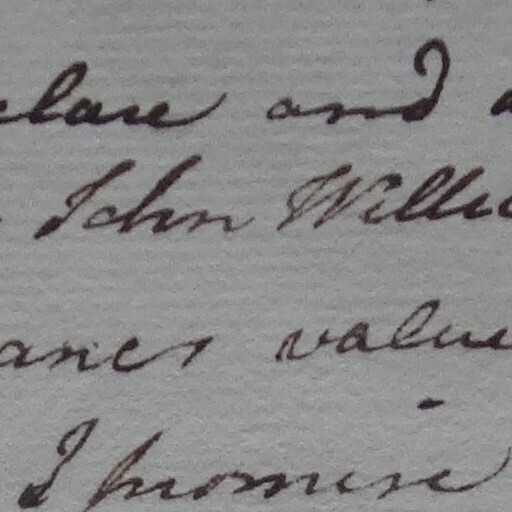 clare and
John Willi
ances value
I promise